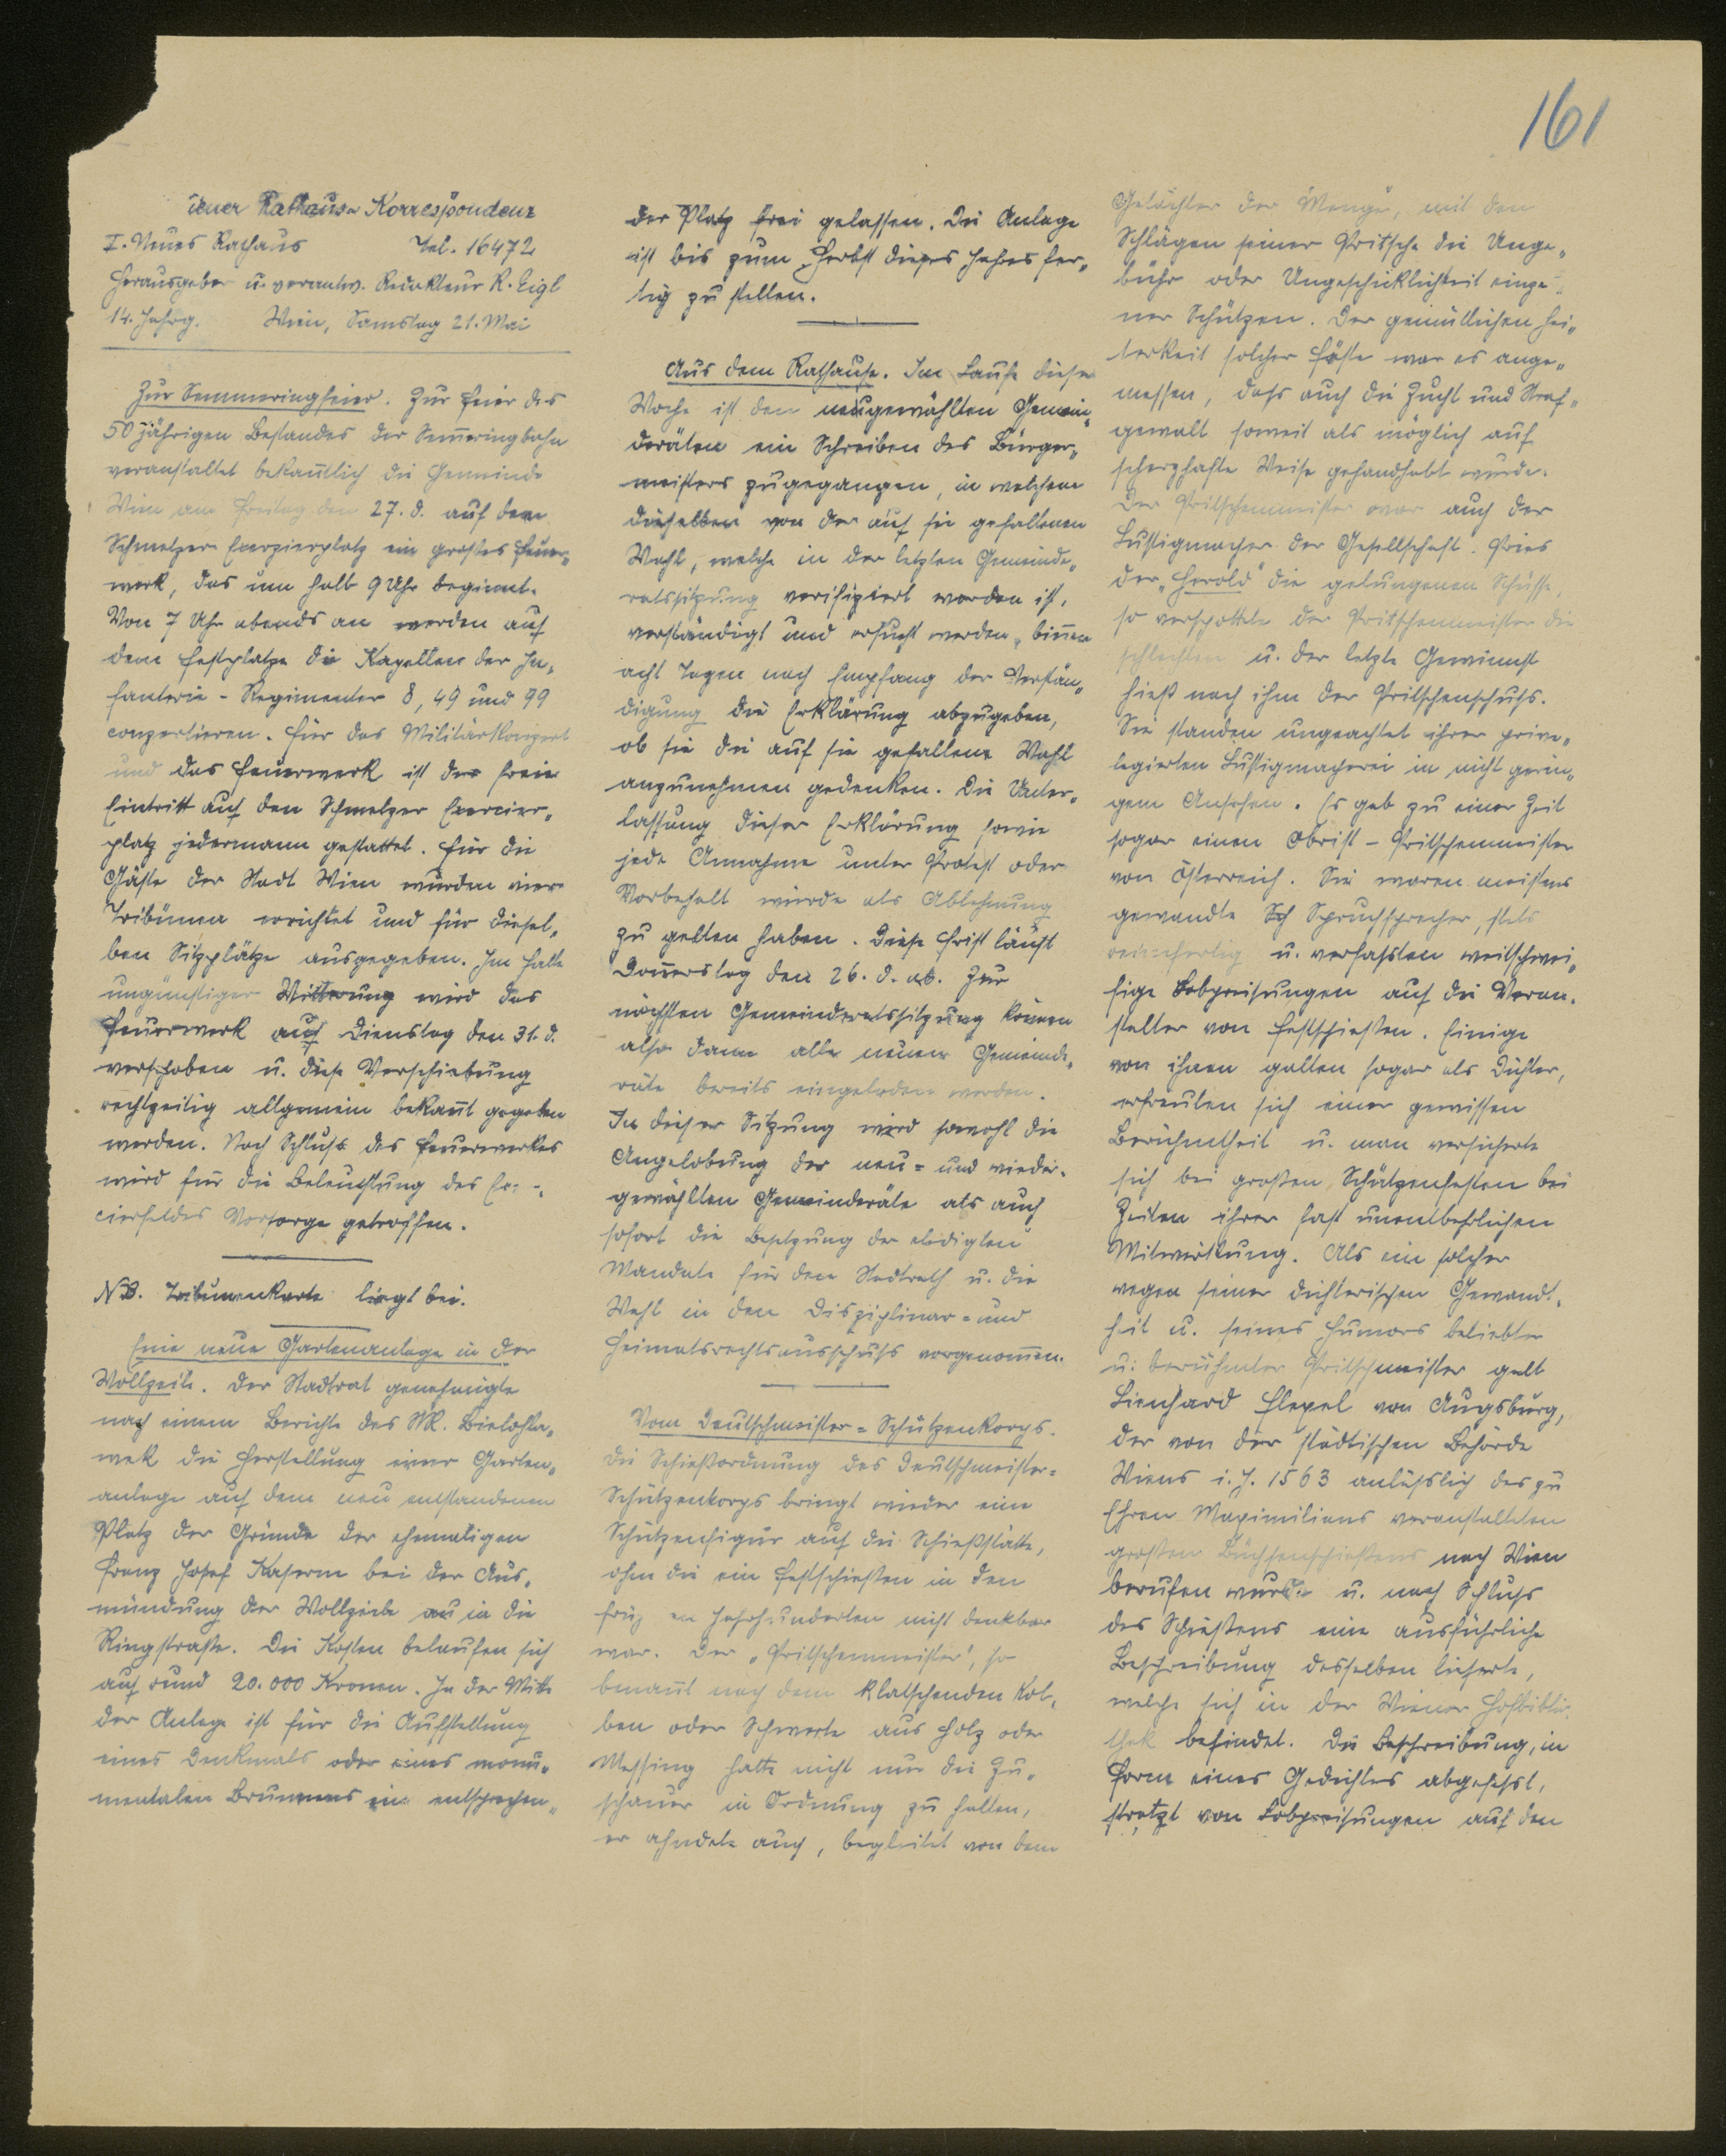 161
iener Rathaus-Korrespondenz
I. Neues Rathaus Tel. 16472
Herausgeber u. verantw. Redakteur R. Eigl
14. Jahrg. Wien, Samstag 21. Mai
Zur Semmeringfeier. Zur Feier des
50 jährigen Bestandes der Sem̅eringbahn
veranstaltet bekan̅tlich die Gemeinde
Wien am Freitag den 27. d. auf dem
Schmelzer Exerzierplatz ein großes Feuer„
werk, das um halb 9 Uhr beginnt.
Von 7 Uhr abends an werden auf
dem Festplatze die Kapellen der In„
fanterie - Regimenter 8, 49 und 99
conzertieren. Für das Militärkonzert
und das Feuerwerk ist der freie
Eintritt auf den Schmelzer Exercier„
platz jedermann gestattet. Für die
Gäste der Stadt Wien wurden vier
Tribünen errichtet und für diesel„
ben Sitzplätze ausgegeben. Im Falle
ungünstiger Witterung wird das
Feuerwerk auf Dienstag den 31. d.
verschoben u. diese Verschiebung
rechtzeitig allgemein bekan̅t gegeben
werden. Nach Schluß des Feuerwerkes
wird für die Beleuchtung des Ex-
cierfeldes Vorsorge getroffen.
NB. Tribünenkarte liegt bei.
Eine neue Gartenanlage in der
Wollzeile. Der Stadtrat genehmigte
nach einem Berichte des StR. Bielohla„
wek die Herstellung einer Garten„
anlage auf dem neu entstandenen
Platz der Gründe der ehemaligen
Franz Josef Kaserne bei der Aus„
mündung der Wollzeile in die
Ringstraße. Die Kosten belaufen sich
auf rund 20.000 Kronen. In der Mitte
der Anlage ist für die Aufstellung
eines Denkmals oder eines monu„
mentalen Brunnens ein entsprechen„
der Platz frei gelassen. Die Anlage
ist bis zum Herbst dieses Jahres fer„
tig zu stellen.
Aus dem Rathause. Im Laufe dieser
Woche ist den neugewählten Gemein„
deräten ein Schreiben des Bürger„
meisters zugegangen, in welchem
dieselben von der auf sie gefallenen
Wahl, welche in der letzten Gemeinde„
ratssitzung verifiziert worden ist,
verständigt und ersucht werden, bin̅en
acht Tagen nach Empfang der Verstän„
digung die Erklärung abzugeben,
ob sie die auf sie gefallene Wahl
anzunehmen gedenken. Die Unter„
lassung dieser Erklärung sowie
jede Annahme unter Protest oder
Vorbehalt würde als Ablehnung
zu gelten haben. Diese Frist läuft
Don̅erstag den 26. d. ab. Zur
nächsten Gemeinderatssitzung können
also dann alle neuen Gemeinde„
räte bereits eingeladen werden.
In dieser Sitzung wird sowohl die
Angelobung der neu= und wieder„
gewählten Gemeinderäte als auch
sofort die Besetzung der erledigten
Mandate für den Stadtrath u. die
Wahl in den Disziplinar= und
Heimatsrechtsausschuß vorgenom̅en.
Vom Deutschmeister=Schützenkorps.
Die Schießordnung des Deutschmeister=
Schützenkorps bringt wieder eine
Schützenfigur auf die Schießstätte,
ohne die ein Festschießen in den
früheren Jahrhunderten nicht denkbar
war. Der „Pritschenmeister", so
benan̅t nach dem klatschenden Kol„
ben oder Schwerte aus Holz oder
Messing hatte nicht nur die Zu„
schauer in Ordnung zu halten,
er ahndete auch, begleitet von dem
Gelächter der Menge, mit den
Schlägen seiner Pritsche die Unge„
bühr oder Ungeschicklichkeit einze„
ner Schützen. Der gemütlichen Hei„
terkeit solcher Feste war es ange„
messen, daß auch die Zucht und Straf„
gewalt soweit als möglich auf
scherzhafte Weise gehandhabt wurde.
Der Pritschenmeister war auch der
Lustigmacher der Gesellschaft. Pries
der „Herold" die gelungenen Schüsse,
so verspottete der Pritschenmeister die
schlechten u. der letzte Gewinnst
hieß nach ihm der Pritschenschuß.
Sie standen ungeachtet ihrer privi„
legierten Lustigmacherei in nicht gerin„
gem Ansehen. Es gab zu einer Zeit
sogar einen Obrist - Pritschenmeister
von Österreich. Sie waren meistens
gewandte Spruchsprecher, stets
reimfertig u. verfaßten weitschwei„
fige Lobpreisungen auf die Veran„
stalter von Festschießen. Einige
von ihnen galten sogar als Dichter,
erfreuten sich einer gewissen
Berühmtheit u. man versicherte
sich bei großen Schützenfesten bei
Zeiten ihrer fast unentbehrlichen
Mitwirkung. Als ein solcher
wegen seiner dichterischen Gewandt„
heit u. seines Humors beliebter
u. berühmter Pritschmeister galt
Lienhard Flexel von Augsburg,
der von der städtischen Behörde
Wiens i. J. 1563 anläßlich des zu
Ehren Maximilians veranstalteten
großen Büchsenschießens nach Wien
berufen wurde u. nach Schluß
des Schießens eine ausführliche
Beschreibung desselben lieferte,
welche sich in der Wiener Hofbiblio„
thek befindet. Die Beschreibung, in
Form eines Gedichtes abgefaßt,
strotzt von Lobpreisungen auf den